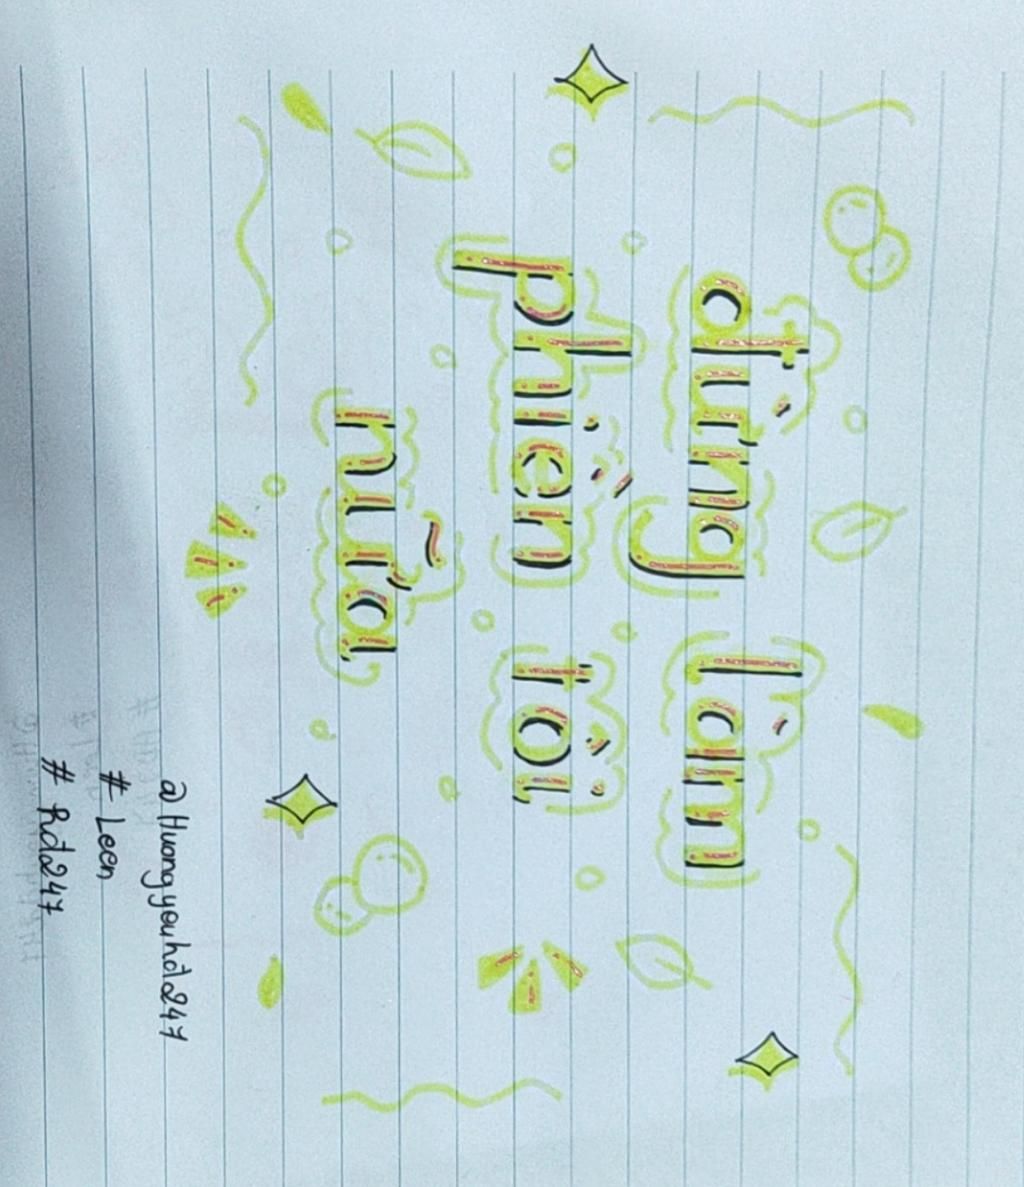 đừng làm
phiền tôi
nữa
@Huongyouhd247
# Leen
# hd247